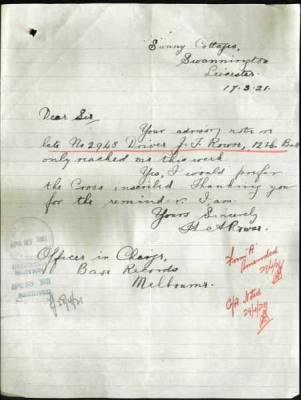 Sunny Cottages,
Swannington
Leicester.
17.3.21.
Dear Sir
Your advisory note re
late No 2948 Driver J. F. Rowse, 12th Bat
only reached us this week.
Yes, I would prefer
the Cross inserted. Thanking you
for the reminder I am
Yours Sincerely
H A Rowse.
Officer in Charge,
Base Records
Melbourne.
Form "A"
Amended
29/4/21
C/R Noted
29/4/21